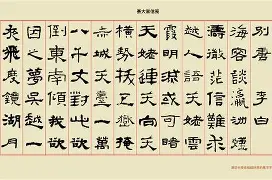 别 唐 李白
海客談瀛洲煙
濤微茫信難求
越人語天姥雲
霞明滅或可睹
天姥連天向天
橫勢拔五嶽掩
赤城天台四萬
八千丈對此欲
倒東南傾我欲
因之夢吳越一
夜飛度鏡湖月